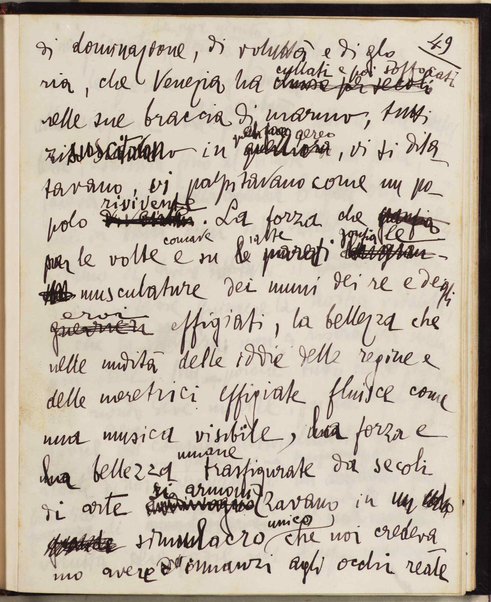 49
di dominazione, di voluttà e di glo
ria, che Venezia ha cullati e poi soffocati
nelle sue braccia di marmo, tutti
risuscitavano in aereo, vi si dila
tavano, vi palpitavano come un po
polo rivivente. La forza che gonfia le
per le volte concave e su le alte pareti
musculature dei numi dei re e degli
eroi effigiati, la bellezza che
nelle nudità delle iddie delle regine e
delle meretrici effigiate fluisce come
una musica visibile, la forza e
la bellezza umane trasfigurate da secoli
di arte si armonizzavano in un solo
simulacro unico che noi credeva
mo avere dinnanzi agli occhi reale